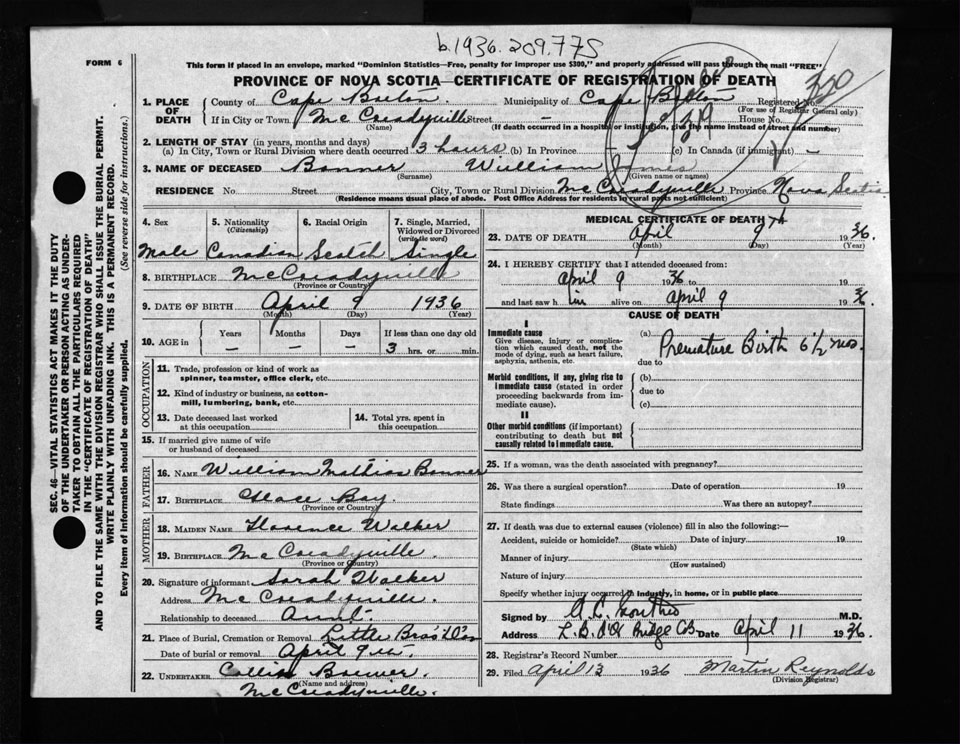 b.1936.209.775
FORM 6
This form if placed in an envelope, marked "Dominion Statistics—Free, penalty for improper use $300," and properly addressed will pass through the mail "FREE"
PROVINCE OF NOVA SCOTIA—CERTIFICATE OF REGISTRATION OF DEATH
350
1. PLACE OF DEATH County of Cape Breton Municipality of Cape Breton Registered No.
(For use of Registrar General only)
If in City or Town McCreadyville Street — House No.
(Name) (If death occurred in a hospital or institution, give the name instead of street and number)
2. LENGTH OF STAY (in years, months and days)
(a) In City, Town or Rural Division where death occurred 3 hours (b) In Province — (c) In Canada (if immigrant) —
3. NAME OF DECEASED Bonner William James
(Surname) (Given name or names)
RESIDENCE No. Street City, Town or Rural Division McCreadyville Province Nova Scotia
(Residence means usual place of abode. Post Office Address for residents in rural parts not sufficient)
4. Sex 5. Nationality (Citizenship) 6. Racial Origin 7. Single, Married, Widowed or Divorced (write the word)
Male Canadian Scotch Single
8. BIRTHPLACE McCreadyville
(Province or Country)
9. DATE OF BIRTH April 9 1936
(Month) (Day) (Year)
10. AGE in Years Months Days If less than one day old
— — — 3 hrs. or min.
OCCUPATION
11. Trade, profession or kind of work as spinner, teamster, office clerk, etc.
12. Kind of industry or business, as cotton-mill, lumbering, bank, etc.
13. Date deceased last worked at this occupation
14. Total yrs. spent in this occupation
15. If married give name of wife or husband of deceased
FATHER
16. NAME William Mathias Bonner
17. BIRTHPLACE Glace Bay
(Province or Country)
MOTHER
18. MAIDEN NAME Florence Walker
19. BIRTHPLACE McCreadyville
(Province or Country)
20. Signature of informant Sarah Walker
Address McCreadyville
Relationship to deceased Aunt
21. Place of Burial, Cremation or Removal Little Bras D'Or
Date of burial or removal April 9
22. UNDERTAKER Bonner
(Name and address)
McCreadyville
MEDICAL CERTIFICATE OF DEATH
23. DATE OF DEATH April 9th 1936
(Month) (Day) (Year)
24. I HEREBY CERTIFY that I attended deceased from:
April 9 1936 to
and last saw h im alive on April 9 1936
CAUSE OF DEATH
I
Immediate cause
Give disease, injury or complication which caused death, not the mode of dying, such as heart failure, asphyxia, asthenia, etc.
(a) Premature Birth 6½ mos.
due to
Morbid conditions, if any, giving rise to immediate cause (stated in order proceeding backwards from immediate cause).
(b)
due to
(c)
II
Other morbid conditions (if important) contributing to death but not causally related to immediate cause.
25. If a woman, was the death associated with pregnancy?
26. Was there a surgical operation? Date of operation 19
State findings Was there an autopsy?
27. If death was due to external causes (violence) fill in also the following:—
Accident, suicide or homicide? Date of injury 19
(State which)
Manner of injury
(How sustained)
Nature of injury
Specify whether injury occurred in industry, in home, or in public place
Signed by M.D.
Address Bridge CB Date April 11 1936
28. Registrar's Record Number
29. Filed April 13 1936 Martin Reynolds
(Division Registrar)
SEC. 46—VITAL STATISTICS ACT MAKES IT THE DUTY
OF THE UNDERTAKER OR PERSON ACTING AS UNDER-
TAKER TO OBTAIN ALL THE PARTICULARS REQUIRED
IN THE "CERTIFICATE OF REGISTRATION OF DEATH"
AND TO FILE THE SAME WITH THE DIVISION REGISTRAR WHO SHALL ISSUE THE BURIAL PERMIT.
WRITE PLAINLY WITH UNFADING INK. THIS IS A PERMANENT RECORD.
Every item of Information should be carefully supplied. (See reverse side for instructions.)